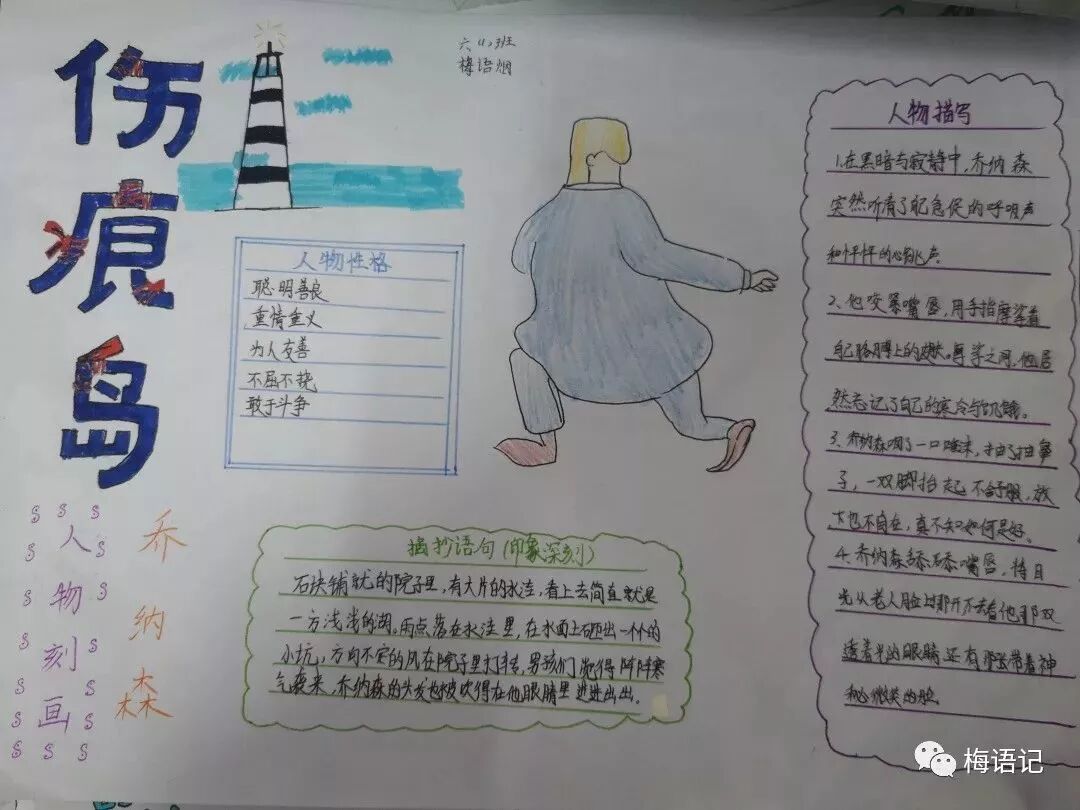 伤痕岛
六(1)班
梅语烟
人物性格
聪明善良
重情重义
为人友善
不屈不挠
敢于斗争
人物刻画
乔纳森
摘抄语句(印象深刻)
石块铺就的院子里,有大片的水洼,看上去简直就是
一方浅浅的湖。雨点落在水洼里,在水面上砸出一个个的
小坑,方向不定的风在院子里打转,男孩们觉得阵阵寒
气袭来,乔纳森的头发也被吹得在他眼睛里进进出出。
人物描写
1.在黑暗与寂静中,乔纳森
突然听着了配急促的呼吸声
和怦怦的心跳声
2、他咬紧嘴唇,用手指摩挲着
自己胳膊上的。等等之间,他居
然忘记了自己的寒冷与饥饿。
3、乔纳森咽了一口唾沫,抽了抽鼻
子,一双脚抬起不舒服,放
下也不自在,真不知如何是好。
4.乔纳森舔舔嘴唇,将目
光从老人脸上挪开不去看他那双
透着光的眼睛还有那张带着神
秘微笑的脸
梅语记